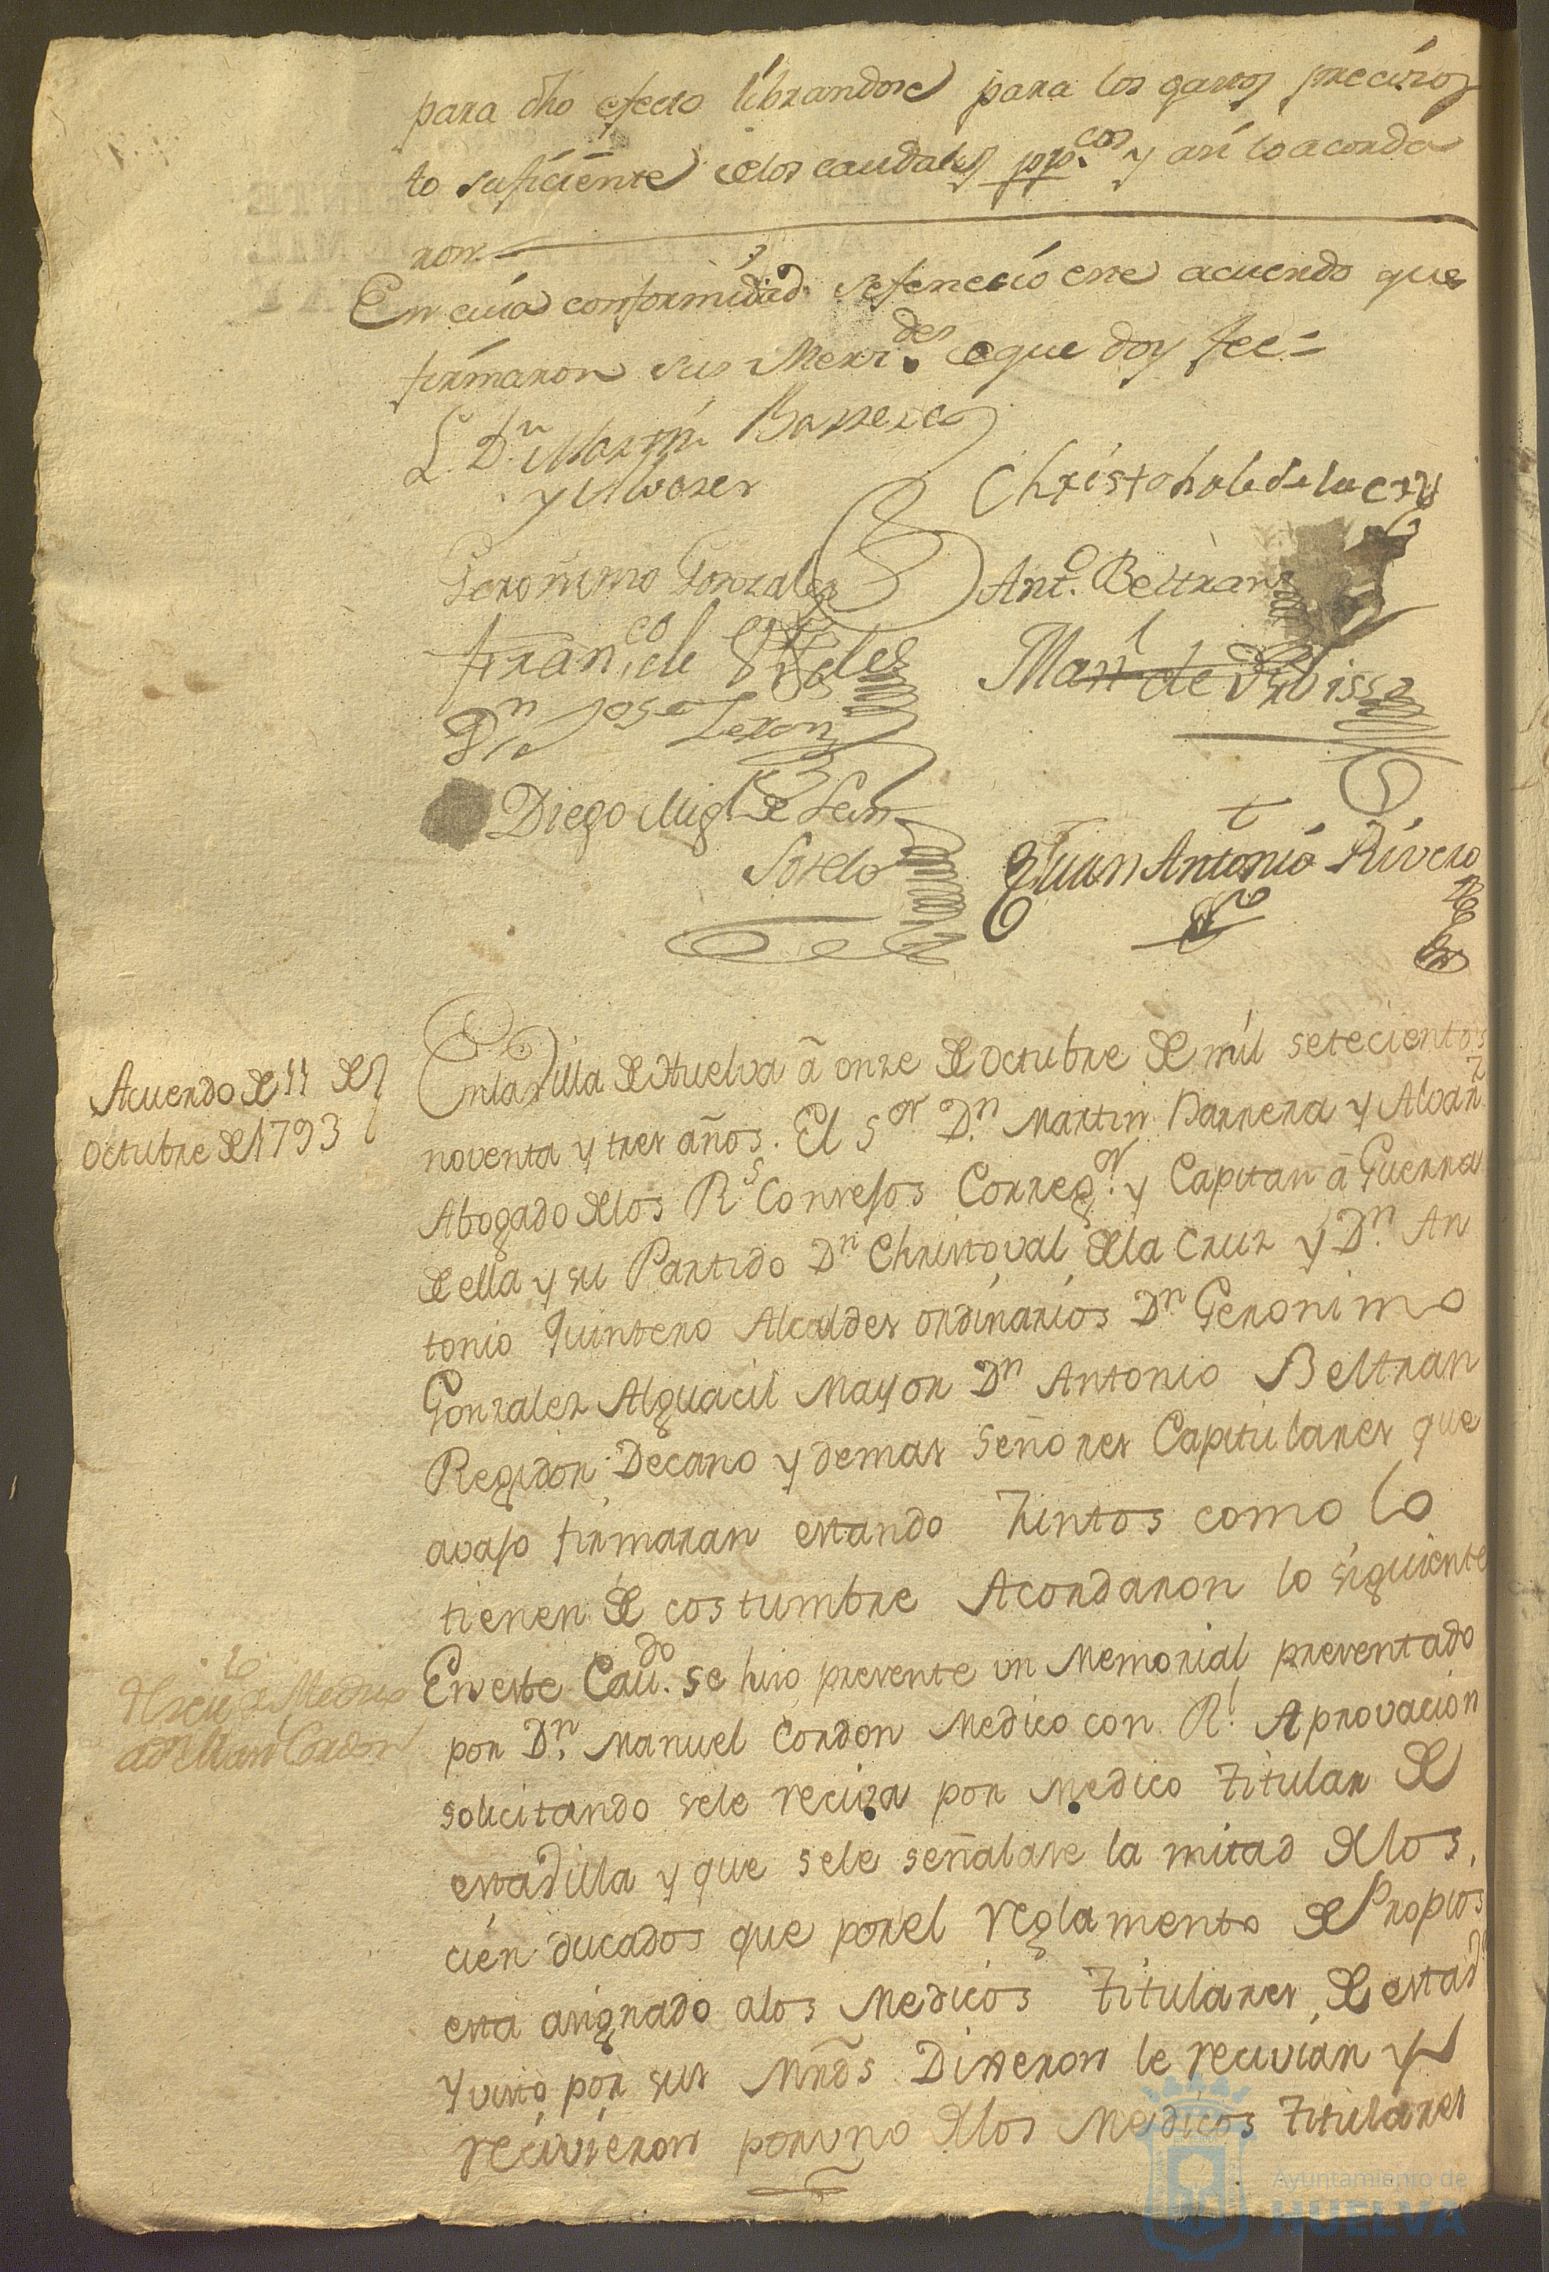 para dho efecto librandose para los gastos precisos
lo suficiente de los caudales pp.cos y asi lo acorda
ron.
En cuia conformidad se fenecio este acuerdo que
firmaron sus Merz.des de que doy fee=
L. Dn. Martin Barrera
y Alvarez
Christobal de la Cruz
Geronimo Gonzalez
Ant.o Beltran
Fran.co de
Man.l de
Dn Josef
Diego Migl de Leon
Sotelo
Juan Antonio Rivero
Acuerdo de 11 de
octubre de 1793
En la Villa de Huelva â onze de octubre de mil setecientos
noventa y tres años. El Sor Dn. Martin Barrera y Alvarz
Abogado de los Rs Consejos Correg.or y Capitan â Guerra
de ella y su Partido Dn Christoval de la Cruz y Dn. An
tonio Quintero Alcaldes ordinarios Dn Geronimo
Gonzalez Alguacil Mayor Dn Antonio Beltran
Regidor Decano y demas señores Capitulares que
avajo firmaran estando Juntos como lo
tienen de costumbre Acordaron lo siguiente
En este Cau.do se hizo presente un Memorial presentado
por Dn. Manuel Cordon Medico con Rl. Aprovacion
solicitando sele reciva por Medico titular de
esta Villa y que sele señalase la mitad de los
cien ducados que por el reglamento de Propios
esta asignado a los Medicos titulares de esta Va
y visto por sus Mrds Dixeron le recivian y
recivieron por uno de los Medicos titulares
de Medico
a Dn Man.l Cordon
Ayuntamiento de
HUELVA